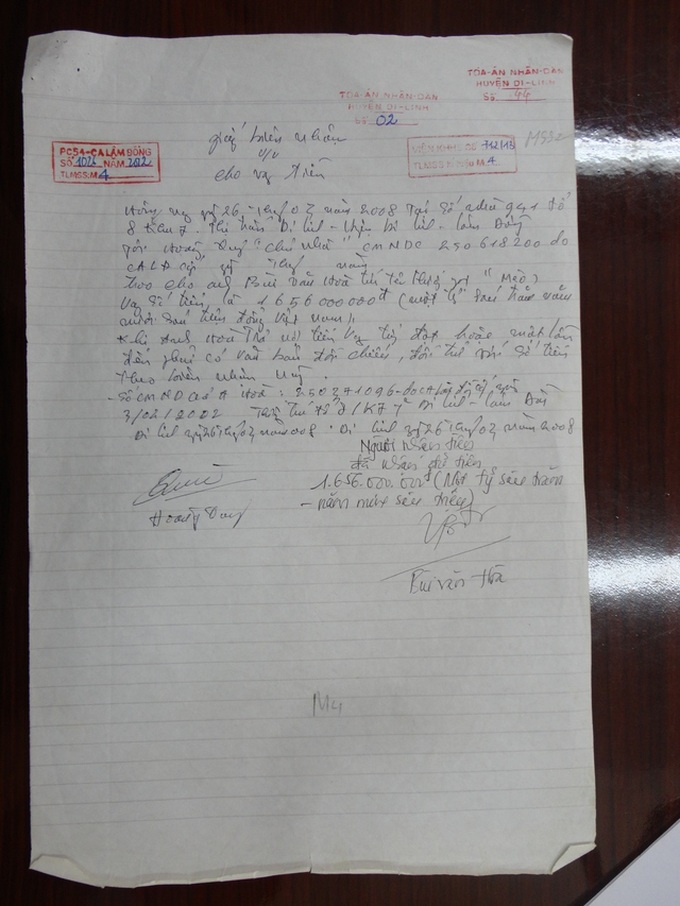 TÒA-ÁN NHÂN-DÂN
HUYỆN DI-LINH
Số 44
TÒA-ÁN NHÂN-DÂN
HUYỆN DI-LINH
Số 02
PC54-CA LÂM ĐỒNG
SỐ 1026 NĂM 2012
TLMGS:M4
TLMGS M4
giấy biên nhận
v/v
cho vay tiền
Hôm nay ngày 26 tháng 03 năm 2008 Tại số nhà 941 tổ
8 Khu 7 Thị trấn Di Linh - Huyện Di Linh - Lâm Đồng
Tôi Hoàng Dung "chủ nhà" CMND 250618200 do
CALĐ cấp ngày tháng năm
cho anh Bùi Văn Hoà tên thường gọi "Mèo"
Vay số tiền là 1656000000đ (một tỷ sáu trăm năm
mươi sáu triệu đồng Việt Nam)
Khi anh Hoà Trả nợ tiền vay từng đợt hoặc một lần
đều phải có văn bản đối chiếu, số tiền
Theo biên nhận này.
- Số CMND của A Hoà: 250271096 - do CA Lâm Đồng cấp ngày
3/02/2002 Di Linh - Lâm Đồng
Di Linh ngày 26 tháng 03 năm 2008. Di Linh ngày 26 tháng 03 năm 2008
Người nhận tiền
đã nhận đủ tiền
1.656.000.000đ (Một tỷ sáu trăm
- năm mươi sáu triệu)
Hoàng Dung
Bùi Văn Hoà
M4